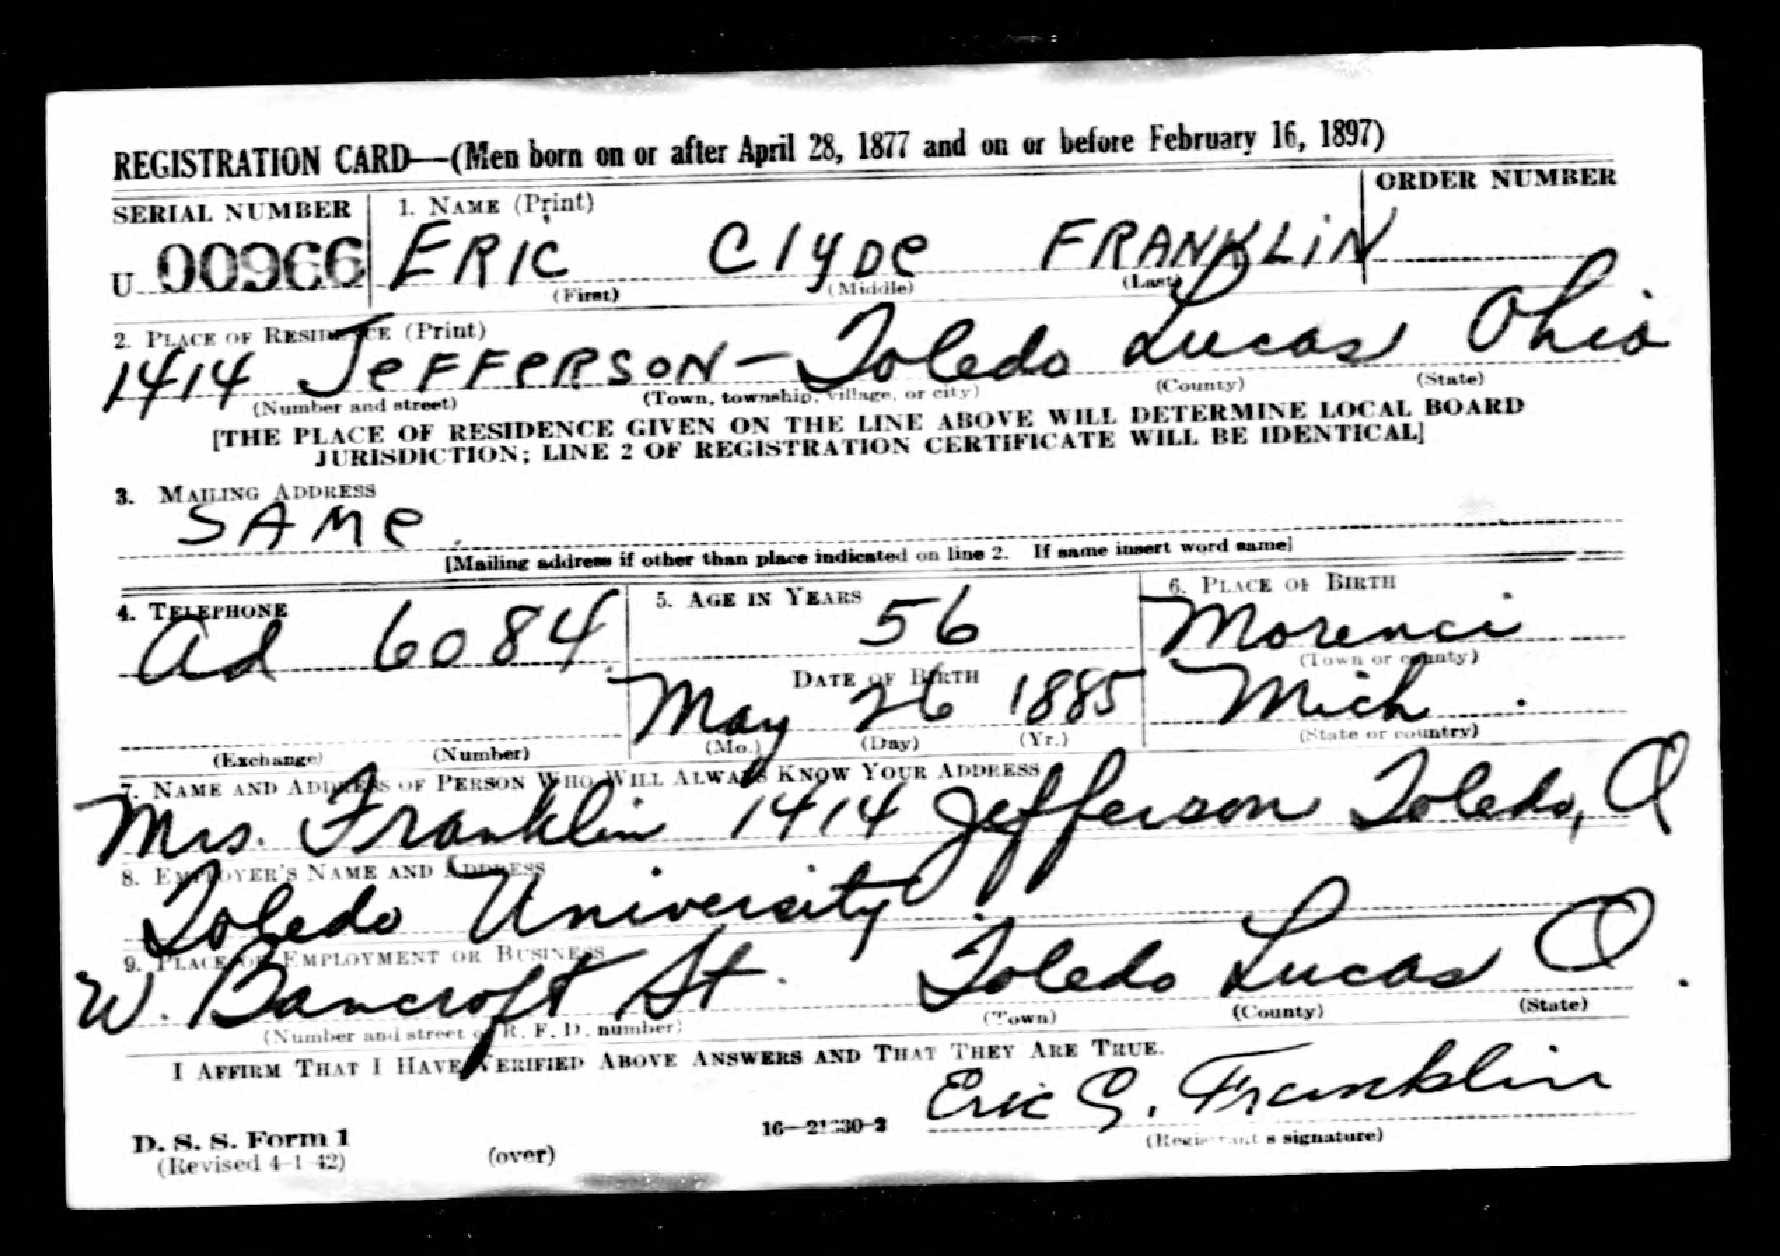 REGISTRATION CARD—(Men born on or after April 28, 1877 and on or before February 16, 1897)
SERIAL NUMBER 1. NAME (Print) ORDER NUMBER
U 00966 ERIC Clyde FRANKLIN
(First) (Middle) (Last)
2. PLACE OF RESIDENCE (Print)
1414 JeFFeRSON – Toledo Lucas Ohio
(Number and street) (Town, township, village, or city) (County) (State)
[THE PLACE OF RESIDENCE GIVEN ON THE LINE ABOVE WILL DETERMINE LOCAL BOARD
JURISDICTION; LINE 2 OF REGISTRATION CERTIFICATE WILL BE IDENTICAL]
3. MAILING ADDRESS
SAMe
[Mailing address if other than place indicated on line 2. If same insert word same]
4. TELEPHONE 5. AGE IN YEARS 6. PLACE OF BIRTH
Ad 6084 56 Morenci
(Town or county)
DATE OF BIRTH
May 26 1885 Mich.
(Exchange) (Number) (Mo.) (Day) (Yr.) (State or country)
7. NAME AND ADDRESS OF PERSON WHO WILL ALWAYS KNOW YOUR ADDRESS
Mrs. Franklin 1414 Jefferson Toledo, O
8. EMPLOYER'S NAME AND ADDRESS
Toledo University
9. PLACE OF EMPLOYMENT OR BUSINESS
W. Bancroft St. Toledo Lucas O.
(Number and street or R. F. D. number) (Town) (County) (State)
I AFFIRM THAT I HAVE VERIFIED ABOVE ANSWERS AND THAT THEY ARE TRUE.
Eric C. Franklin
D. S. S. Form 1 (Registrant's signature)
(Revised 4-1-42) (over)